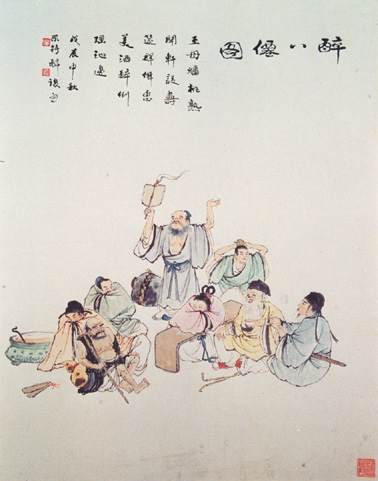 醉八僊圖
王母蟠桃熟
開軒設壽
筵群僊
美酒醉倒
瑤池邊
戊辰中秋